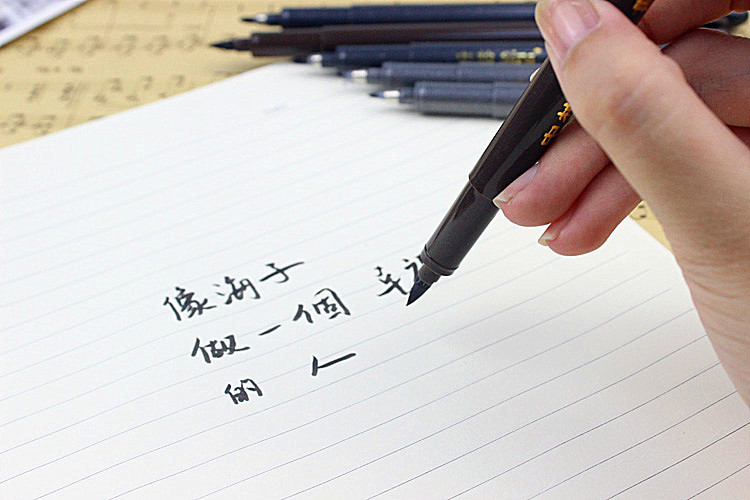 像海子
做一個 幸福
的 人